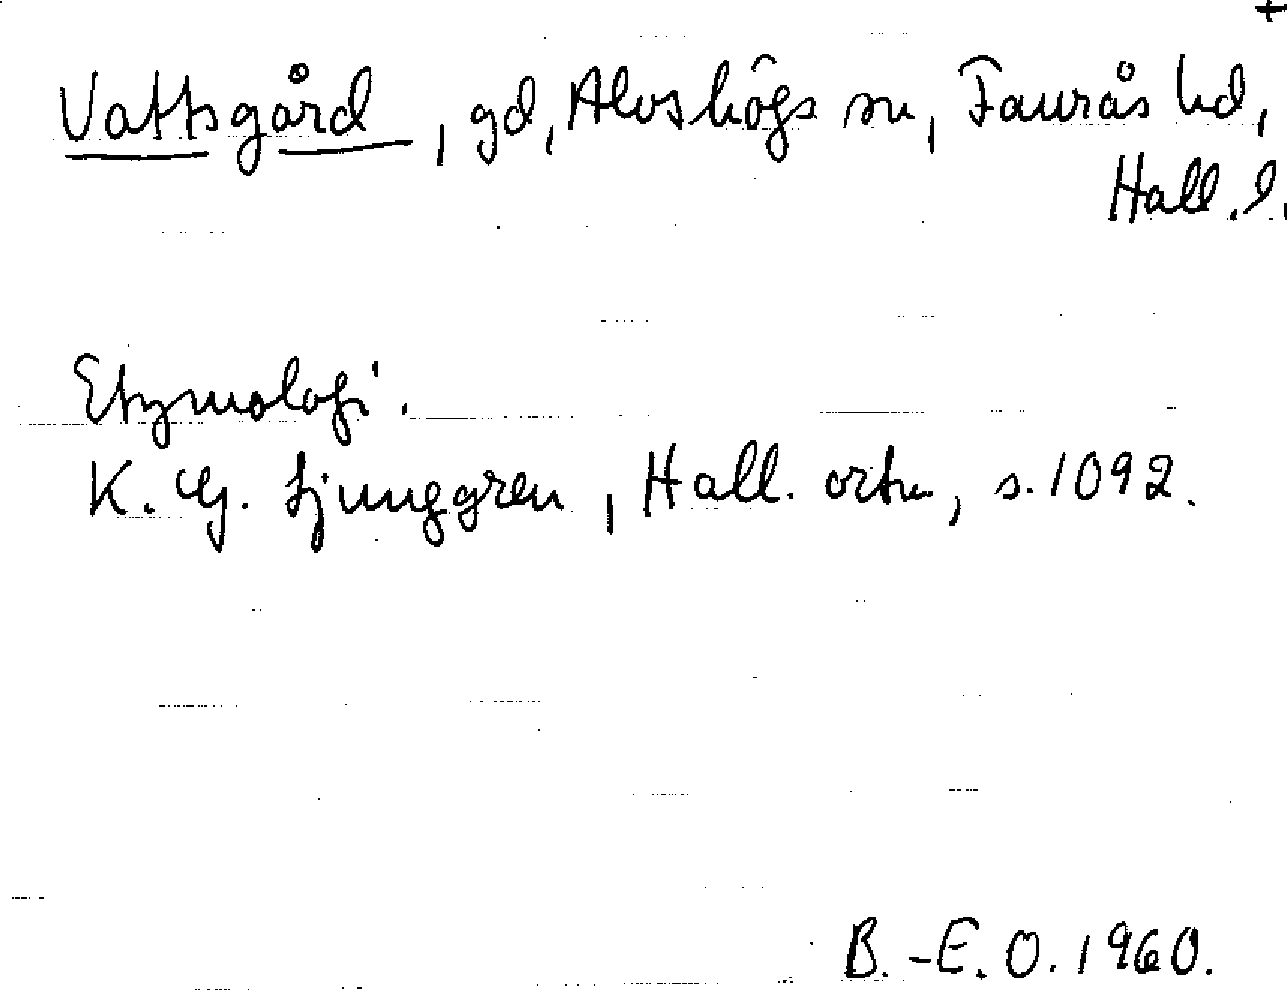 +
Vattsgård, gd, Alvshögs sn, Faurås hd,
Hall. l.
Etymologi.
K. G. Ljunggren, Hall. ortn, s. 1092.
B.-E. O. 1960.